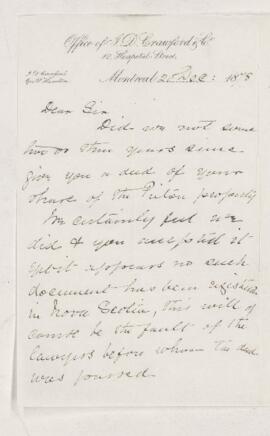 Office of J. D. Crawford & Co.
12, Hospital Street,
Montreal 20 Dec: 1878
Dear Sir
Did we not some
two or three years since
give you a deed of your
share of the Pictou property
We certainly feel we
did & you accepted it
yet it appears no such
document has been registered
in Nova Scotia, this will of
course be the fault of the
lawyers before whom the deed
was passed